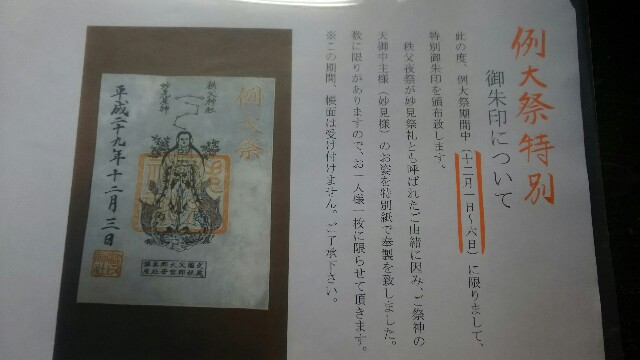 例大祭特別
御朱印について
此の度、例大祭期間中(十二月一日～六日)に限りまして、
特別御朱印を頒布致します。
秩父夜祭が妙見祭礼とも呼ばれたご由緒に因み、ご祭神の
天御中主様(妙見様)のお姿を特別紙で奉製を致しました。
数に限りがありますので、お一人様一枚に限らせて頂きます。
※この期間、帳面は受け付けません。ご了承下さい。
例大祭
秩父神社
平成二十九年十二月三日